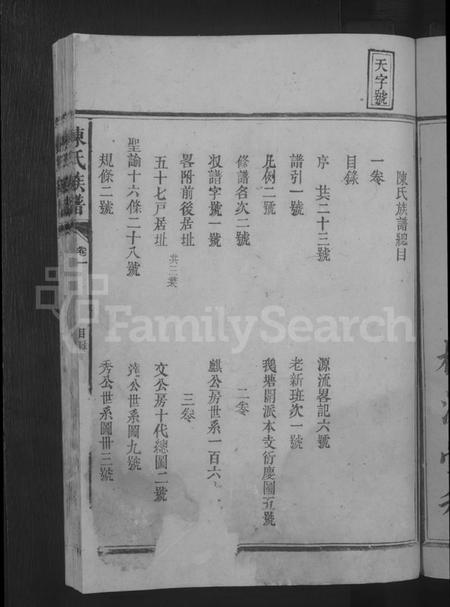 天字號
陳氏族譜總目
一卷
目錄
序 共二十三號
源流畧記六號
譜引一號
老新班次一號
凡例二號
鵝塘開派本支衍慶圖五號
修譜名次二號
二卷
収譜字號一號
麒公房世系一百六
畧附前後居址 共三葉
三卷
五十七戸居址
文公房十代總圖二號
聖諭十六條二十八號
公世系圖九號
規條二號
秀公世系圖卅三號
陳氏族譜
卷一
目錄
FamilySearch